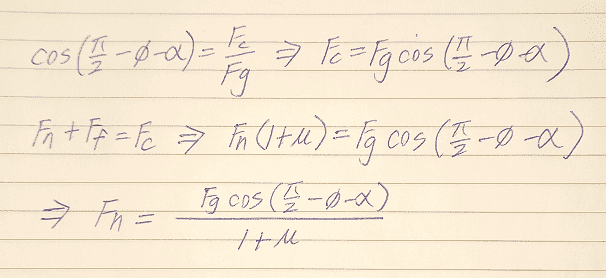 cos(π/2 - φ - α) = Fc/Fg ⇒ Fc = Fg cos(π/2 - φ - α)
Fn + Ff = Fc ⇒ Fn(1+μ) = Fg cos(π/2 - φ - α)
⇒ Fn = Fg cos(π/2 - φ - α)/1+μ